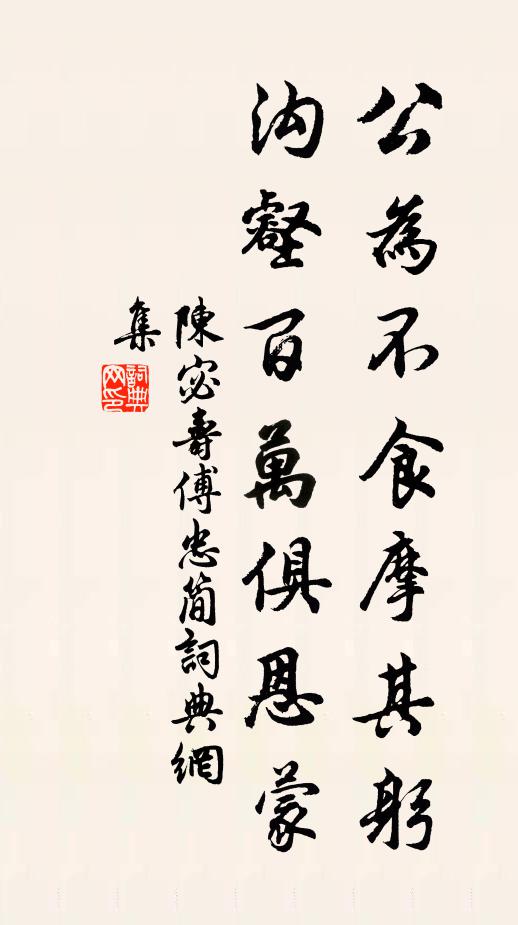 公為不食摩其躬
溝壑百萬俱恩蒙
陳宓壽傅忠簡詞典網
集
詞典
网印